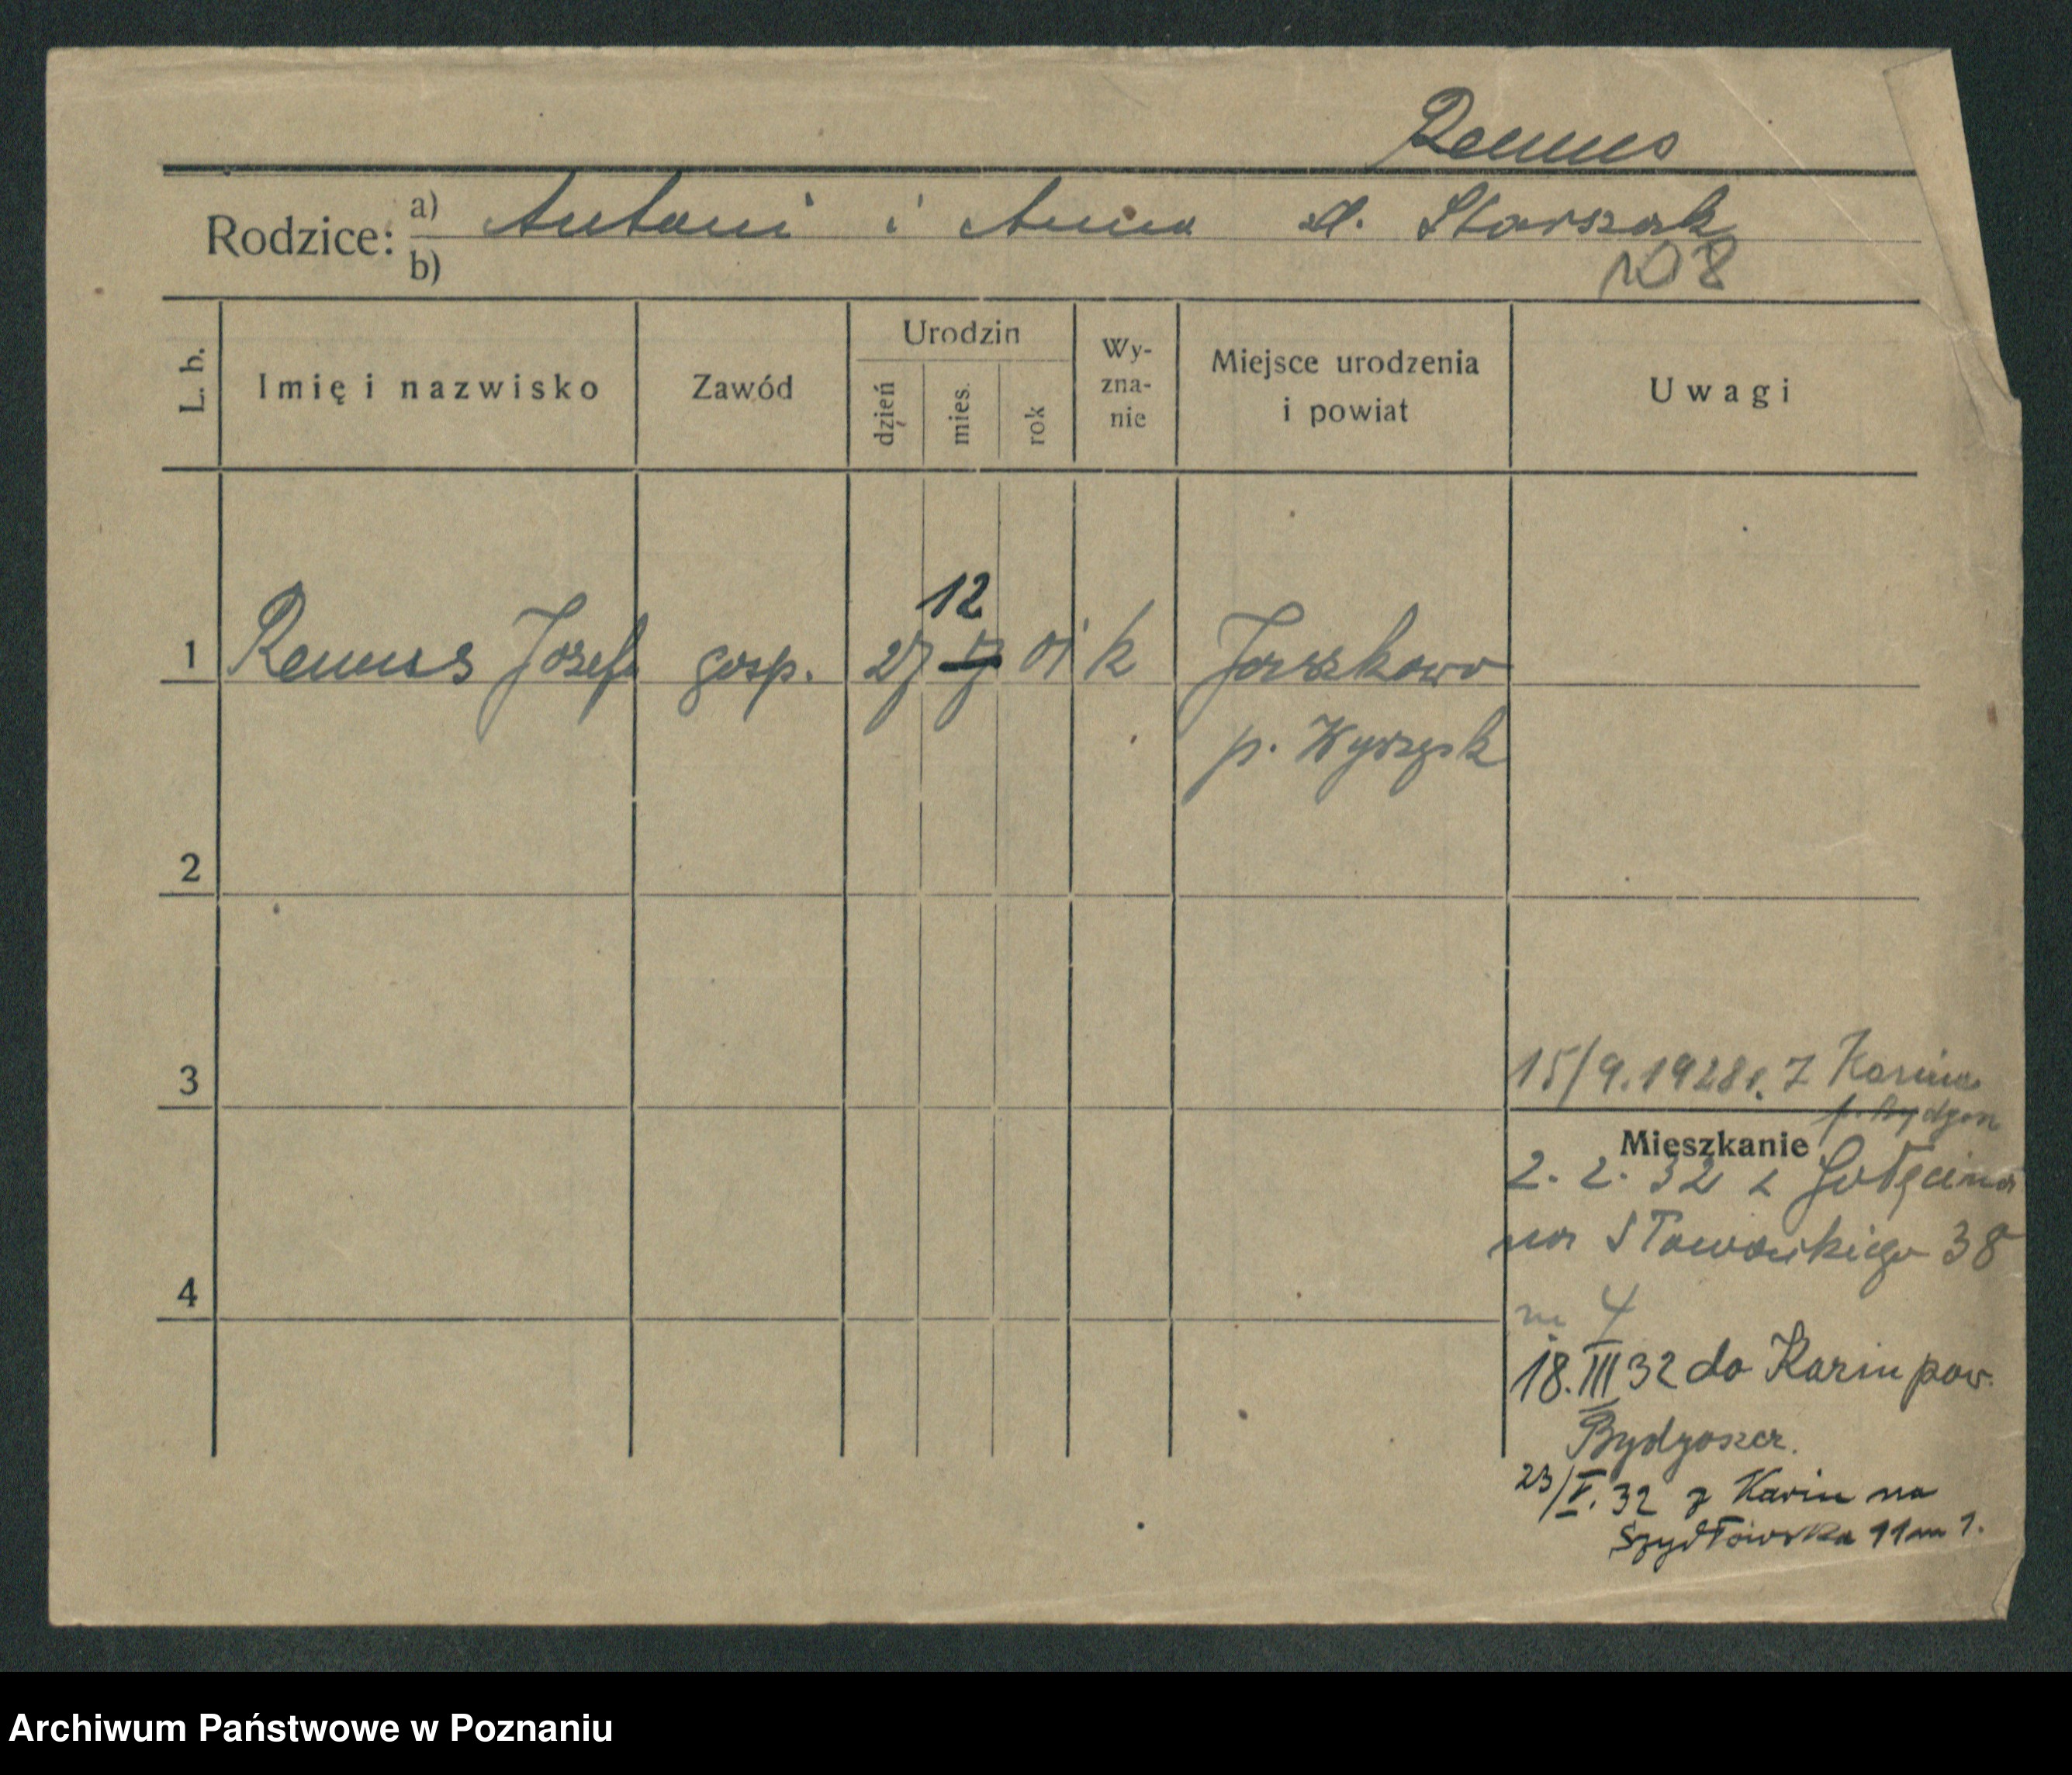 Remus
Rodzice: a) Antoni i Anna d. Starszak
b)
108
L. b.
Imię i nazwisko
Zawód
Urodzin
dzień
mies.
rok
Wy-
zna-
nie
Miejsce urodzenia
i powiat
Uwagi
12
1 Remus Józefa gosp. 27 01 k Jaszkowo
p. Wyrzysk
2
3
15/9.1928r. z
p. Bydgosz
Mieszkanie
2. 2. 32 z Gołęcina
na Słowackiego 38
4
m 4
18.III 32 do Karin pow.
Bydgoszcz.
23/V. 32 z Karin na
Szydłowska 11 m 1.
Archiwum Państwowe w Poznaniu